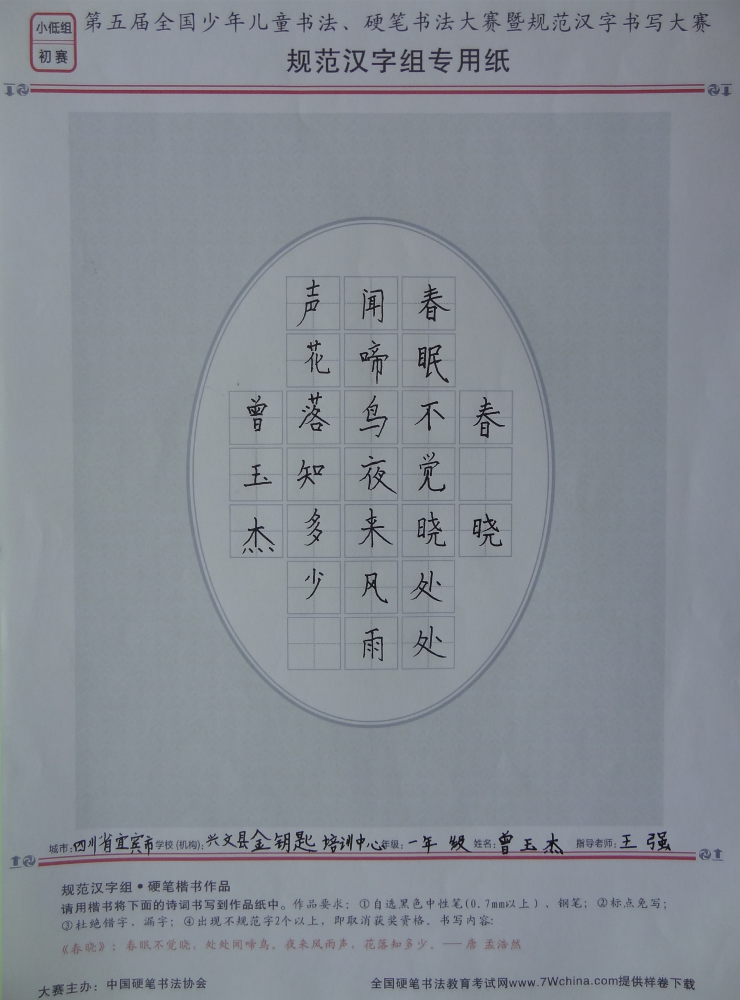 小低组
初赛
第五届全国少年儿童书法、硬笔书法大赛暨规范汉字书写大赛
规范汉字组专用纸
春晓
春眠不觉晓处处
闻啼鸟夜来风雨
声花落知多少
曾玉杰
城市:四川省宜宾市 学校(机构):兴文县金钥匙培训中心 年级:一年级 姓名:曾玉杰 指导老师:王强
规范汉字组•硬笔楷书作品
请用楷书将下面的诗词书写到作品纸中。作品要求：①自选黑色中性笔(0.7mm以上)、钢笔；②标点免写；
③杜绝错字、漏字；④出现不规范字2个以上，即取消获奖资格。书写内容:
《春晓》：春眠不觉晓，处处闻啼鸟。夜来风雨声，花落知多少。——唐 孟浩然
大赛主办：中国硬笔书法协会
全国硬笔书法教育考试网www.7Wchina.com提供样卷下载